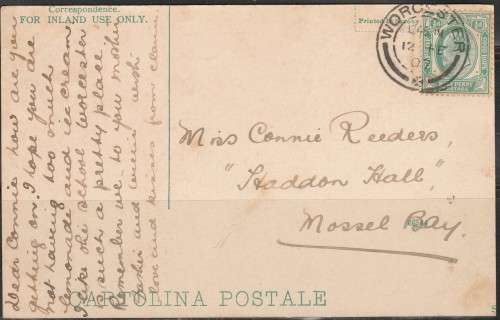 Correspondence.
FOR INLAND USE ONLY.
Printed in
WORCESTER
12 FE
03
Miss Connie Reeders,
"Haddon Hall",
Mossel Bay.
CARTOLINA POSTALE
Dear Connie how are you
getting on. I hope you are
not having too much
lemonade and ice cream
I like the school Worcester
is such a pretty place.
Remember me to your mother
and with
love and kisses from